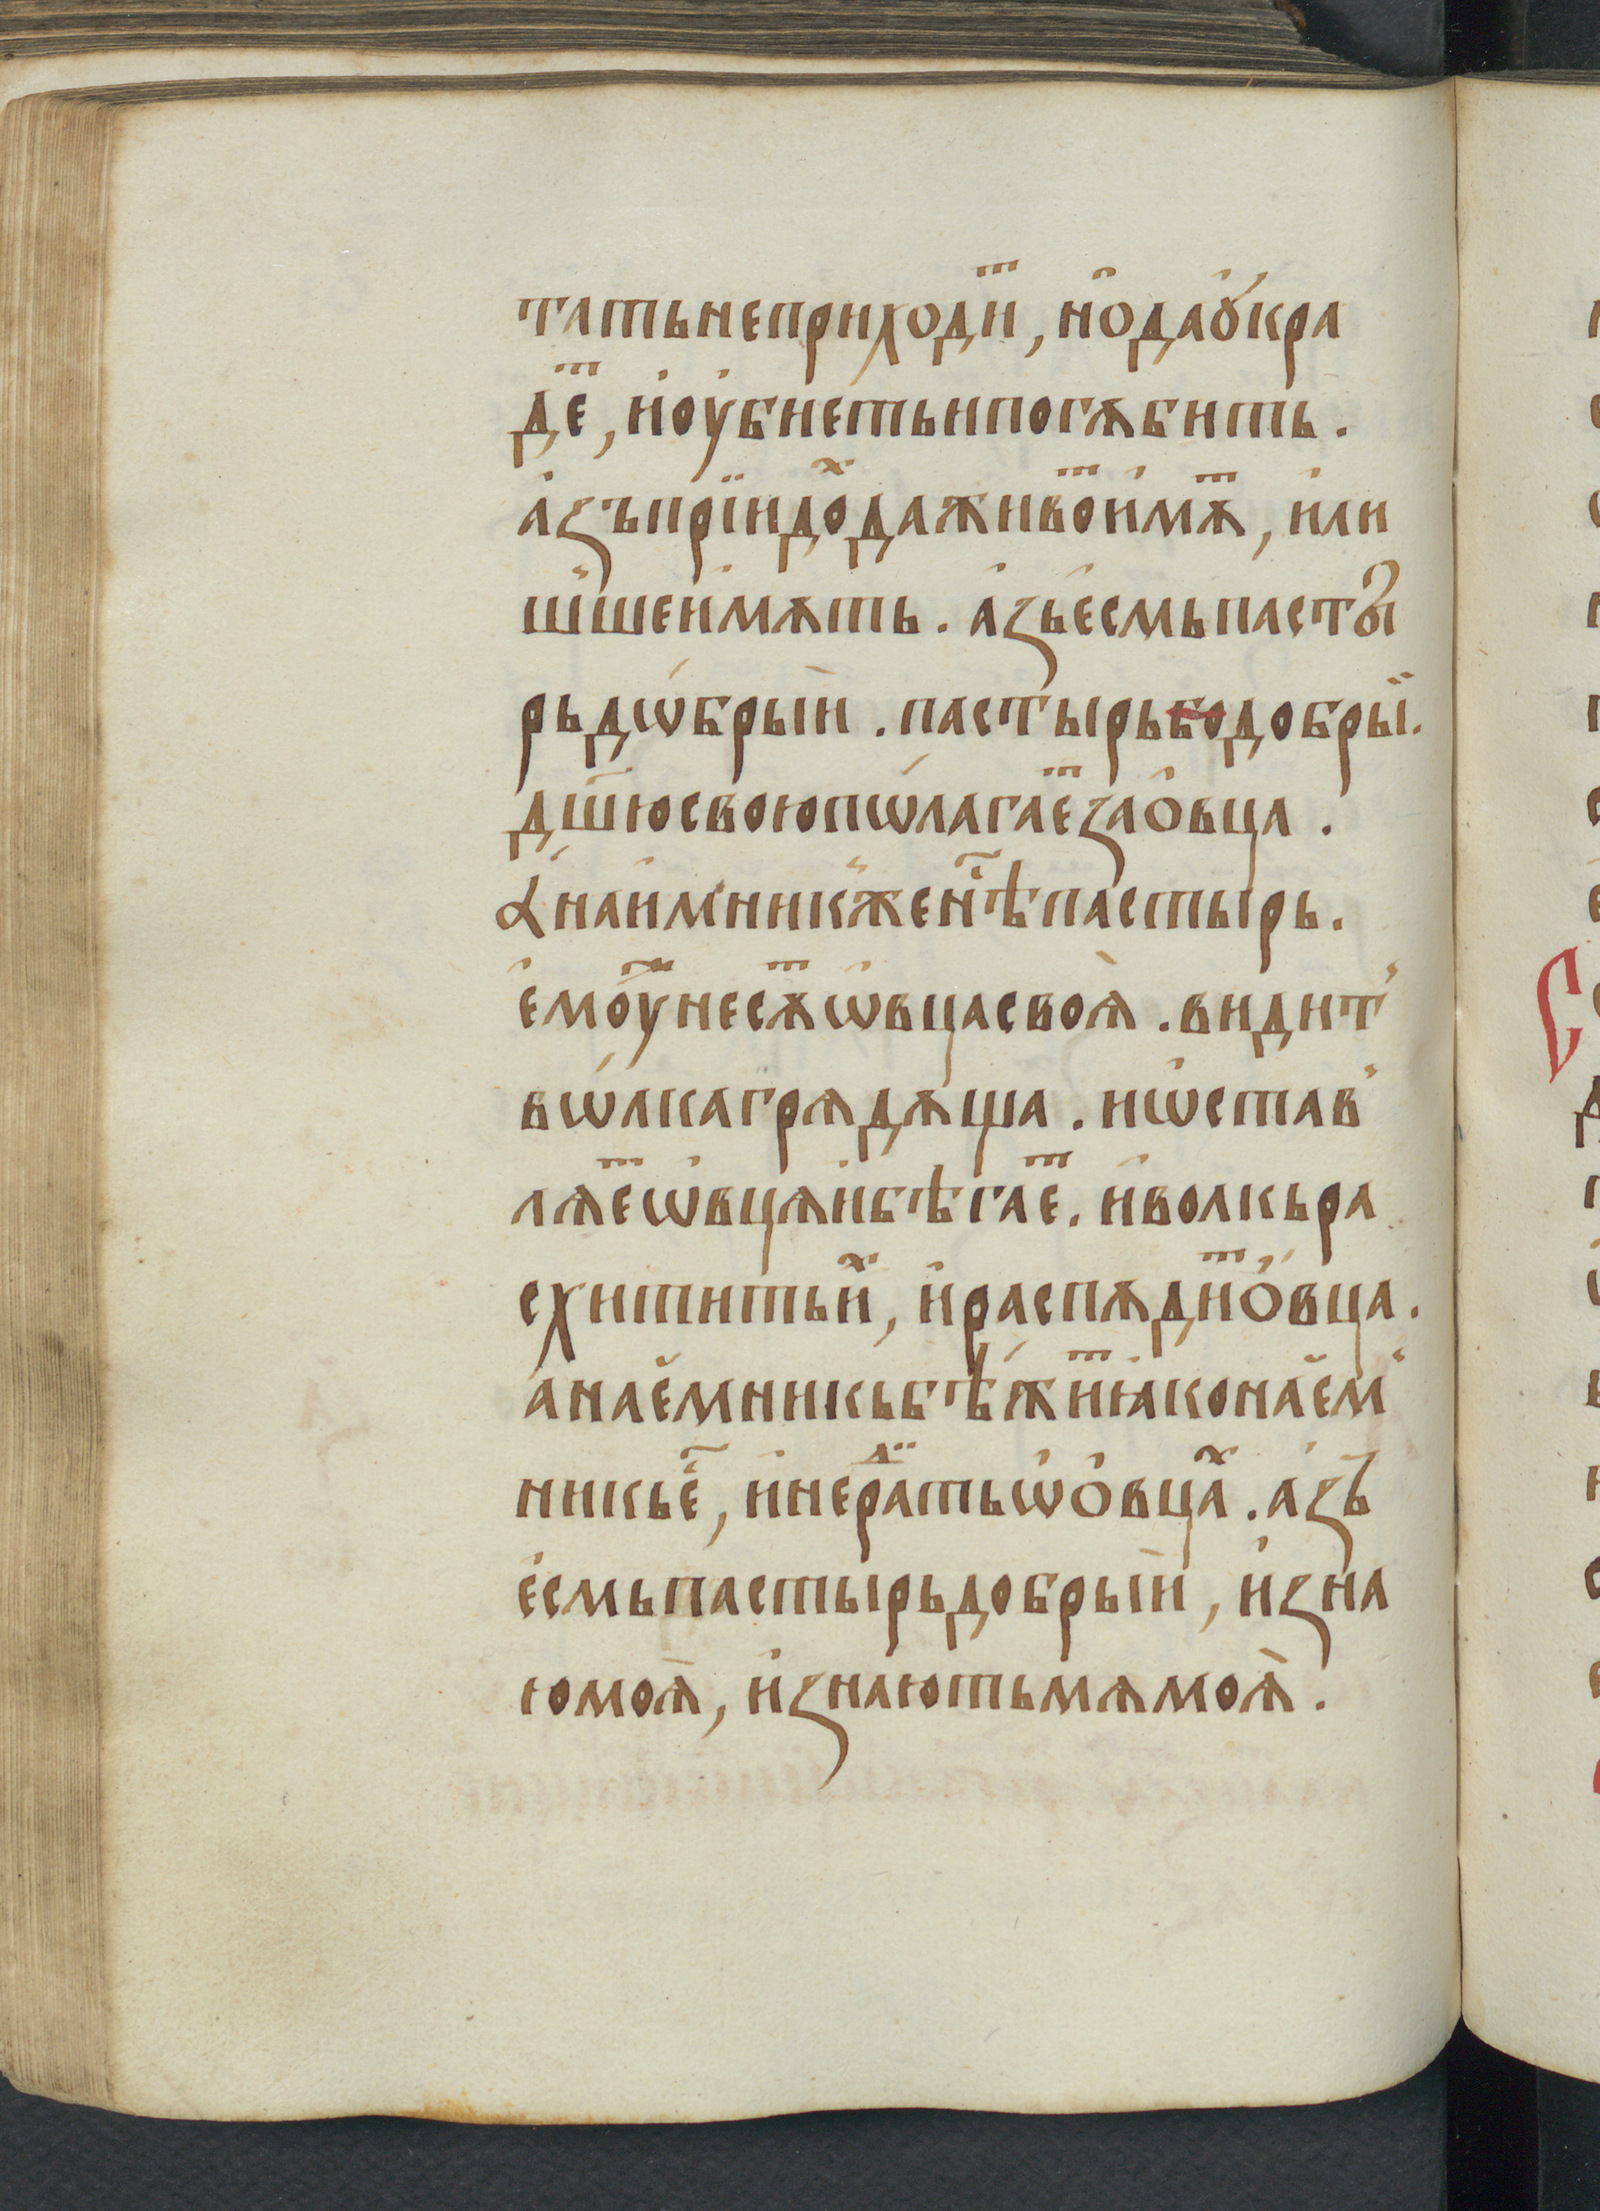 тать неприходиⷮ, н҆одаꙋ҆кра
деⷮ, и҆оу҆биеть ипогѫбить.
а҆зъ прїидоⷯ дажи҆воⷮи҆мѫⷮ, и҆ли
ши҆шеи҆мѫть. а҆зъе҆смь пасты
рьдѡ́брыи҆. пастырьбодобрыї.
дш҃ю свою пѡлагаеⷮ заѻ҆вца.
А҆наи҆мникже нⷭ҇ѣ пастырь.
е҆моу҆ⷤ несѫⷮ ѡ҆вца своѧ. видит
вѡ́лка грѧдѫща. иѡ҆став
лѧеⷮ ѡ҆вцѧ и҆бѣгаеⷮ. и҆волкьра
схититьиⷯ, и҆распѫдиⷮ ѻ҆́вца.
а҆наемникьбѣжиⷮ ꙗ҆конаем
никье҆ⷭ҇, и҆нераⷣить ѡ҆ѻ҆вцаⷯ. а҆зъ
е҆смь пастырь добрыи, и҆зна
ю моѧ, и҆знають мѧ моѧ.